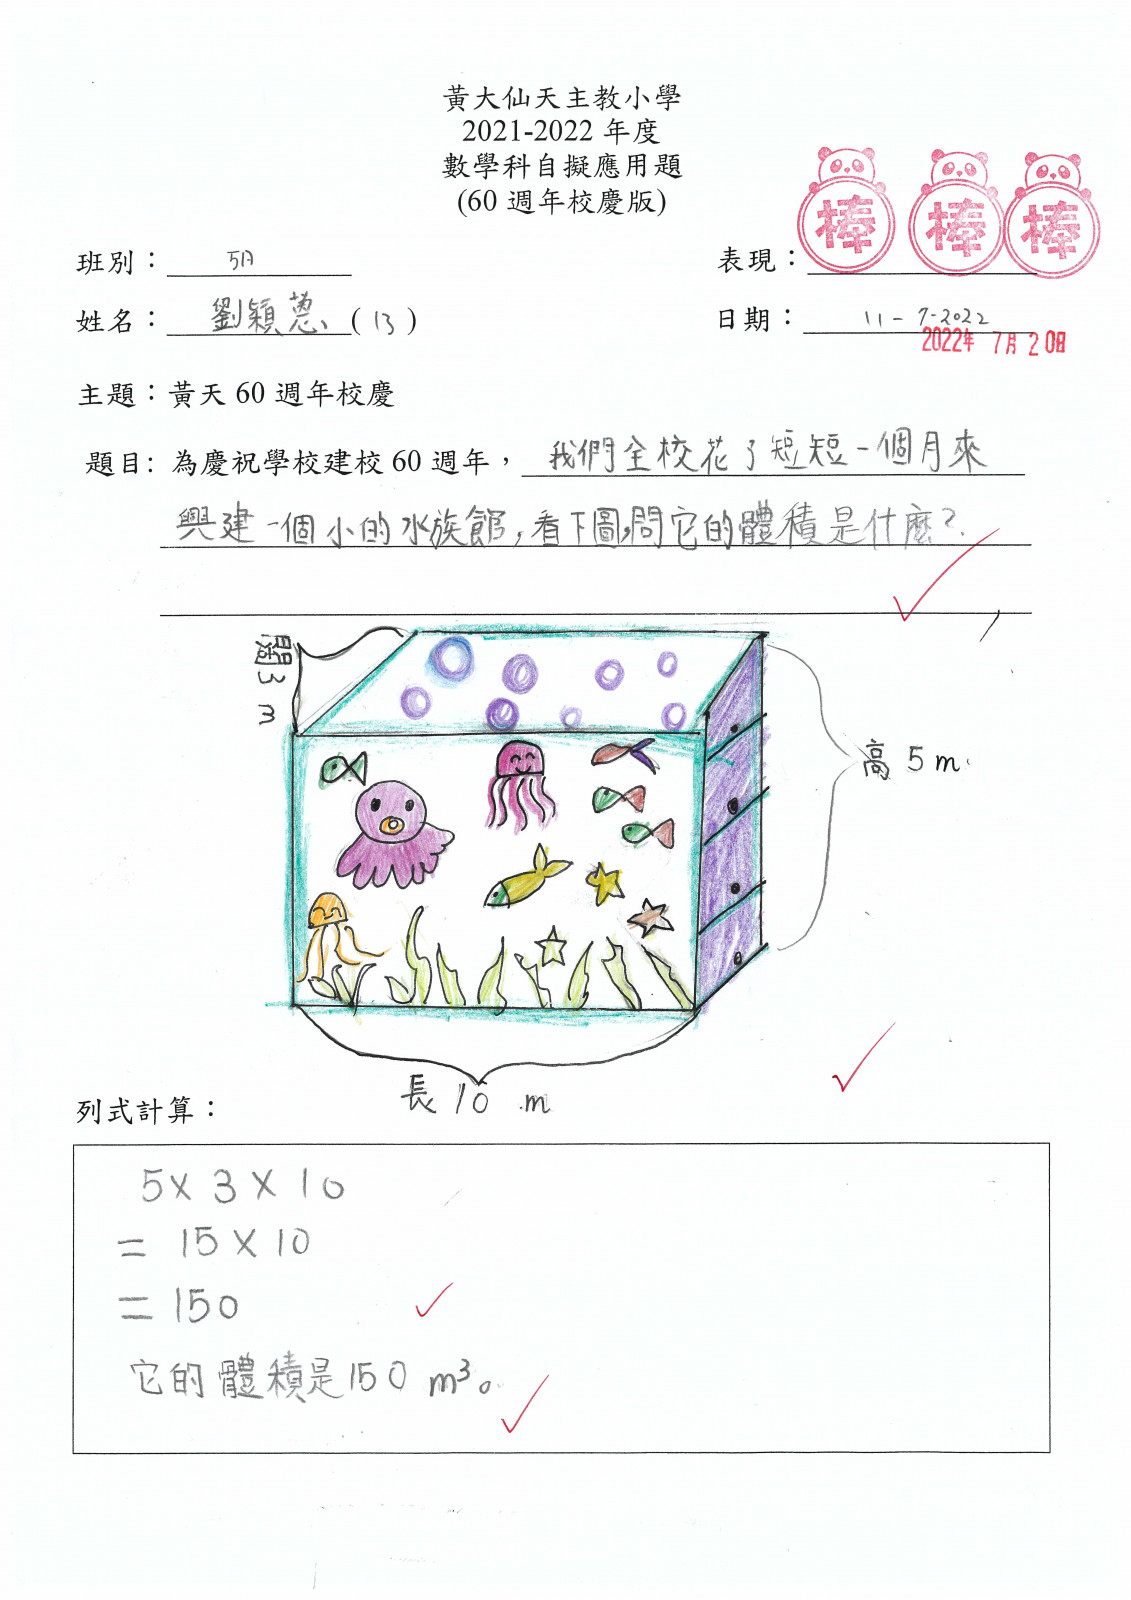 黃大仙天主教小學
2021-2022 年度
數學科自擬應用題
(60 週年校慶版)
班別：5A
表現：棒 棒 棒
姓名：劉穎蒽 (13)
日期：11-7-2022
2022年 7月 20日
主題：黃天 60 週年校慶
題目: 為慶祝學校建校 60 週年，我們全校花了短短一個月來
興建一個小的水族館,看下圖,問它的體積是什麼?
闊3m
高 5m
長 10 m
列式計算：
5×3×10
= 15×10
= 150
它的體積是150 m³。